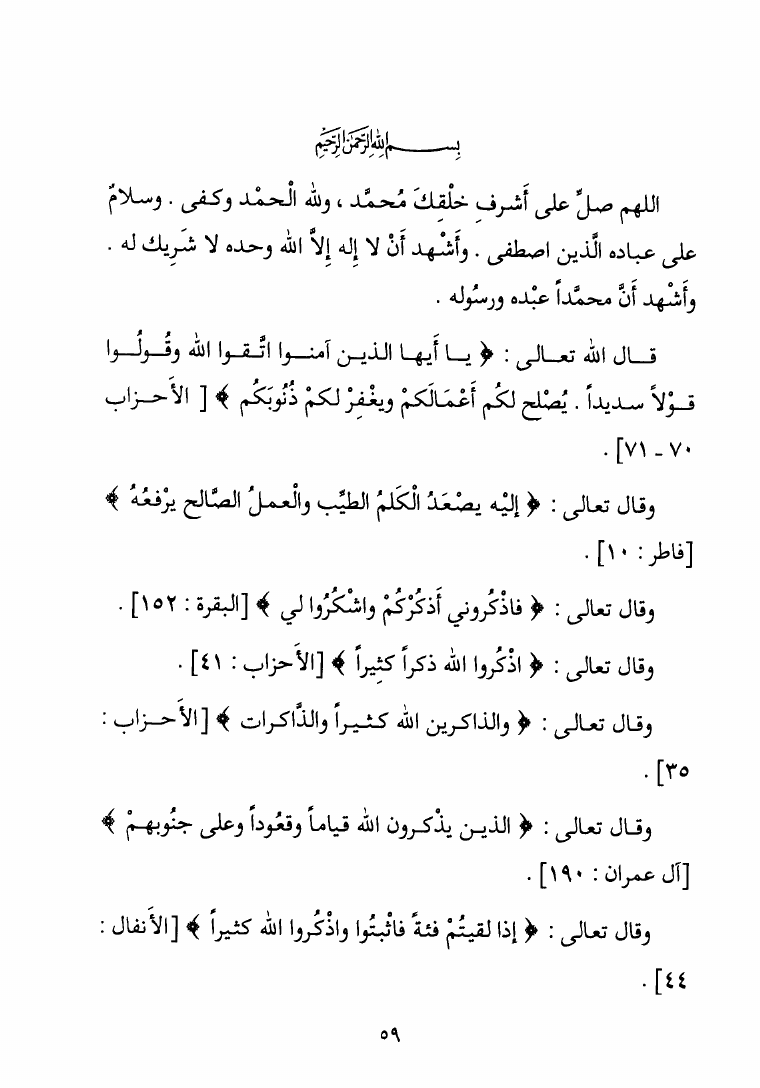 بسم الله الرحمن الرحيم
اللهم صلِّ على أَشرفِ خلْقِكَ مُحمَّد ، ولله الْحمْد وكفى . وسلامٌ
على عباده الَّذين اصطفى . وأَشْهد أَنْ لا إِله إِلاَّ الله وحده لا شَرِيك له .
وأَشْهد أَنَّ محمَّداً عبْده ورسُوله .
قـــال الله تعـــالى : ﴿ يـــا أَيها الذيـن آمنـــوا اتَّـقـوا الله وقُـولُـــوا
قــوْلاً سـديداً . يُصْلح لكُم أَعْمَالَكمْ ويغْفِرْ لكمْ ذُنُوبَكُم ﴾ [ الأَحـــزاب
٧٠ - ٧١] .
وقال تعالى : ﴿ إليْه يصْعَدُ الْكَلمُ الطيِّب والْعملُ الصَّالح يرْفعُهُ ﴾
[فاطر : ١٠] .
وقال تعالى : ﴿ فاذْكُروني أَذكُرْكُمْ واشْكُرُوا لي ﴾ [البقرة : ١٥٢] .
وقال تعالى : ﴿ اذْكُروا الله ذكراً كثِيراً ﴾ [الأَحزاب : ٤١] .
وقال تعالى : ﴿ والذاكرين الله كـثـيراً والذَّاكرات ﴾ [الأَحـــزاب :
٣٥] .
وقـال تعالى : ﴿ الذيـن يذْكـرون الله قـياماً وقعُوداً وعلى جنُوبهـمْ ﴾
[آل عمران : ١٩٠] .
وقال تعالى : ﴿ إذا لقيتُمْ فئةً فاثْبتُوا واذْكُروا الله كثيراً ﴾ [الأَنفال :
٤٤] .
٥٩